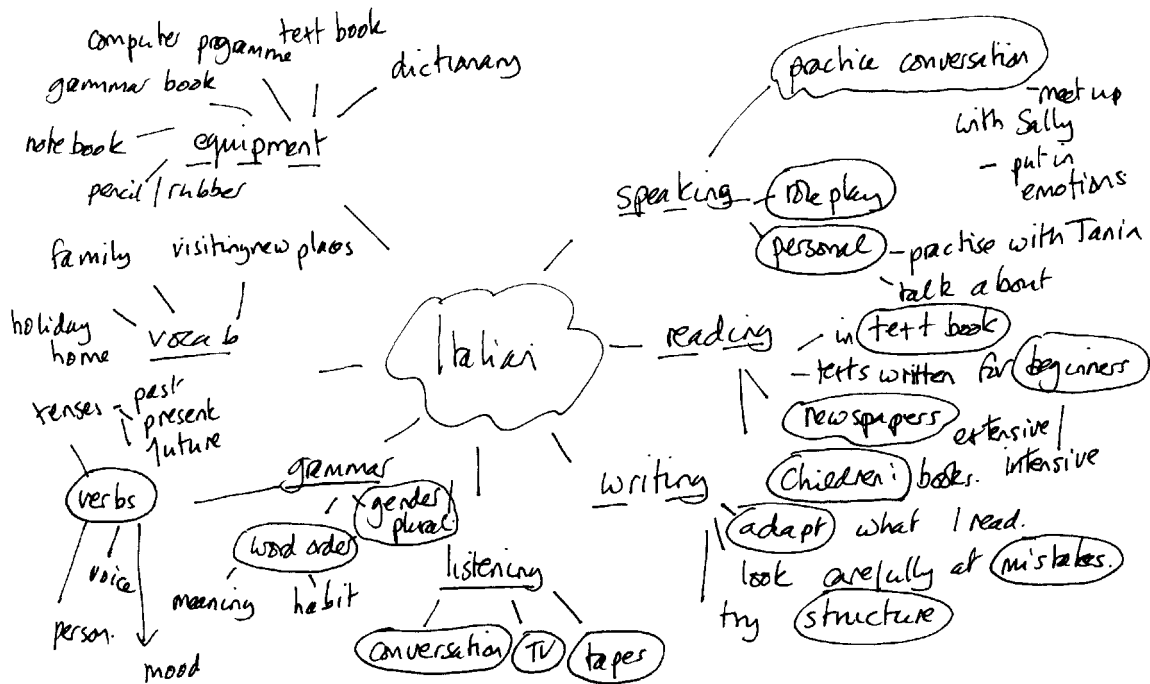 computer programme
text book
dictionary
grammar book
note book
equipment
pencil / rubber
family
visiting new places
holiday
home
vocab
tenses - past
present
future
verbs
voice
person.
mood
grammar
gender/
plural.
word order
meaning
habit
Italian
listening
conversation
TV
tapes
speaking
practice conversation
- meet up
with Sally
- put in
emotions
role play
personal - practise with Tania
- talk about
reading
- in text book
- texts written for beginners
newspapers
extensive/
intensive
Children's books.
writing
adapt what I read.
look carefully at mistakes.
try structure